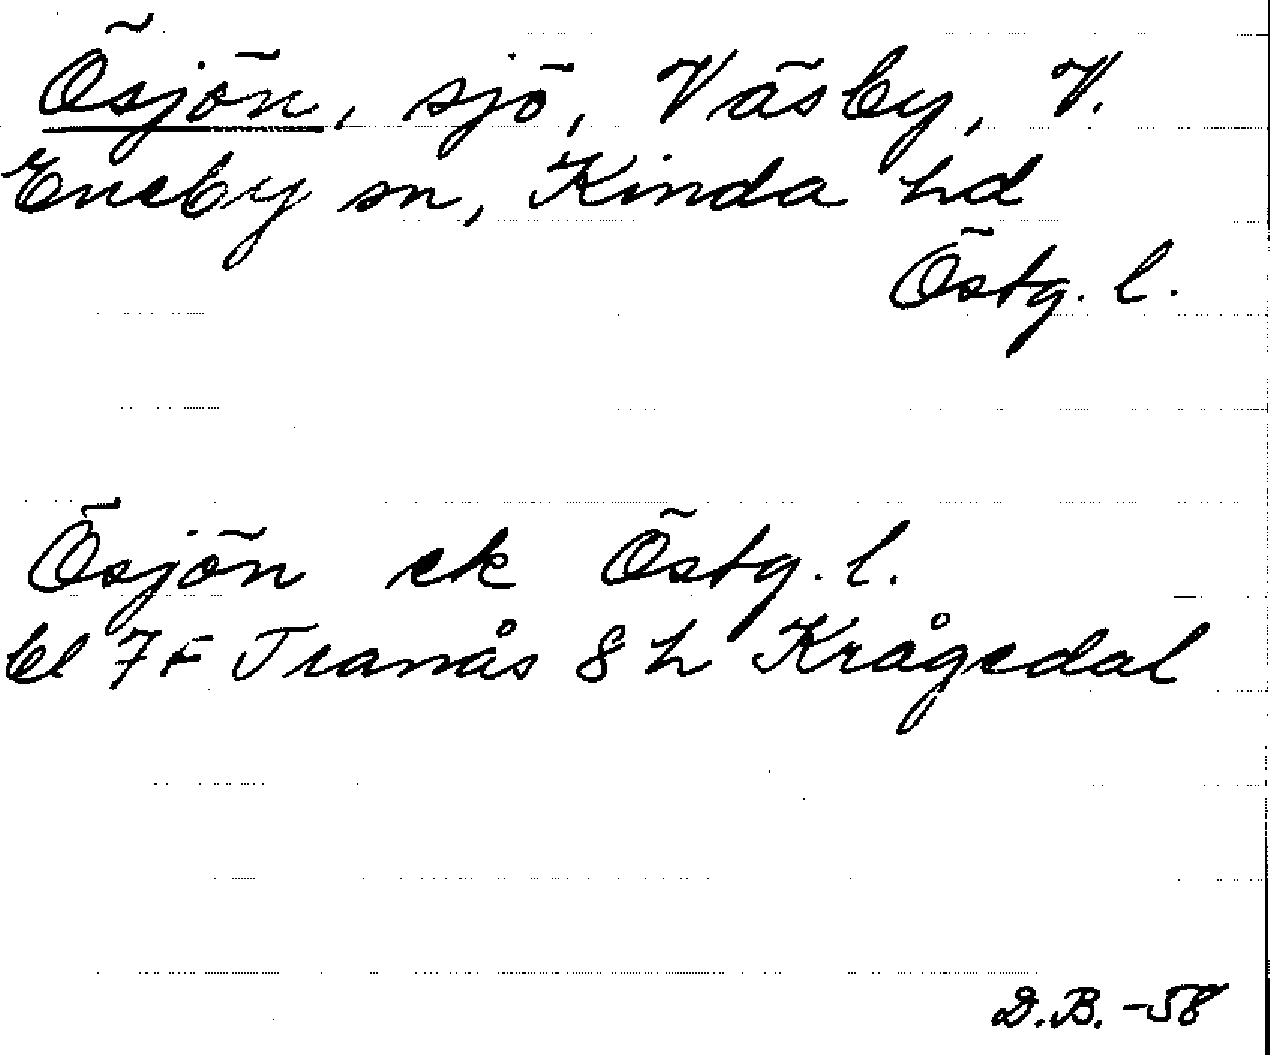 Ösjön, sjö, Väsby, V.
Eneby sn, Kinda hd
Östg. l.
Ösjön ek Östg. l.
bl 7F Tranås 8h Krågedal
D.B. -58